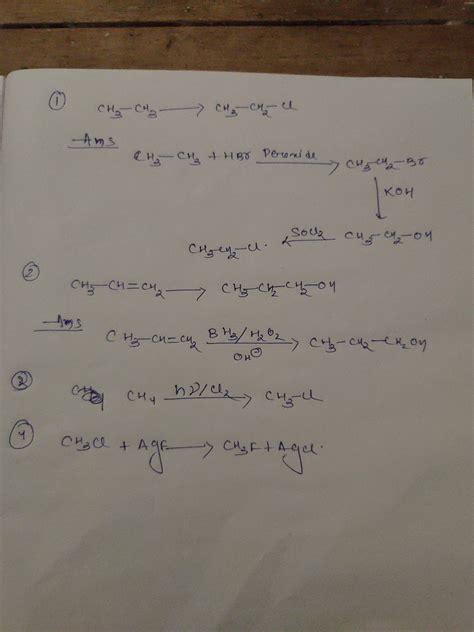 ① CH₃–CH₃ ⟶ CH₃–CH₂–Cl
Ans
CH₃–CH₃ + HBr Peroxide⟶ CH₃–CH₂–Br
↓ KOH
CH₃CH₂–Cl. ⟵ SOCl₂ CH₃–CH₂–OH
② CH₃–CH=CH₂ ⟶ CH₃–CH₂–CH₂–OH
Ans
CH₃–CH=CH₂ BH₃/H₂O₂ ⟶ CH₃–CH₂–CH₂OH
OH⊖
③ CH₄ hν/Cl₂ ⟶ CH₃–Cl
④ CH₃Cl + AgF ⟶ CH₃F + AgCl.